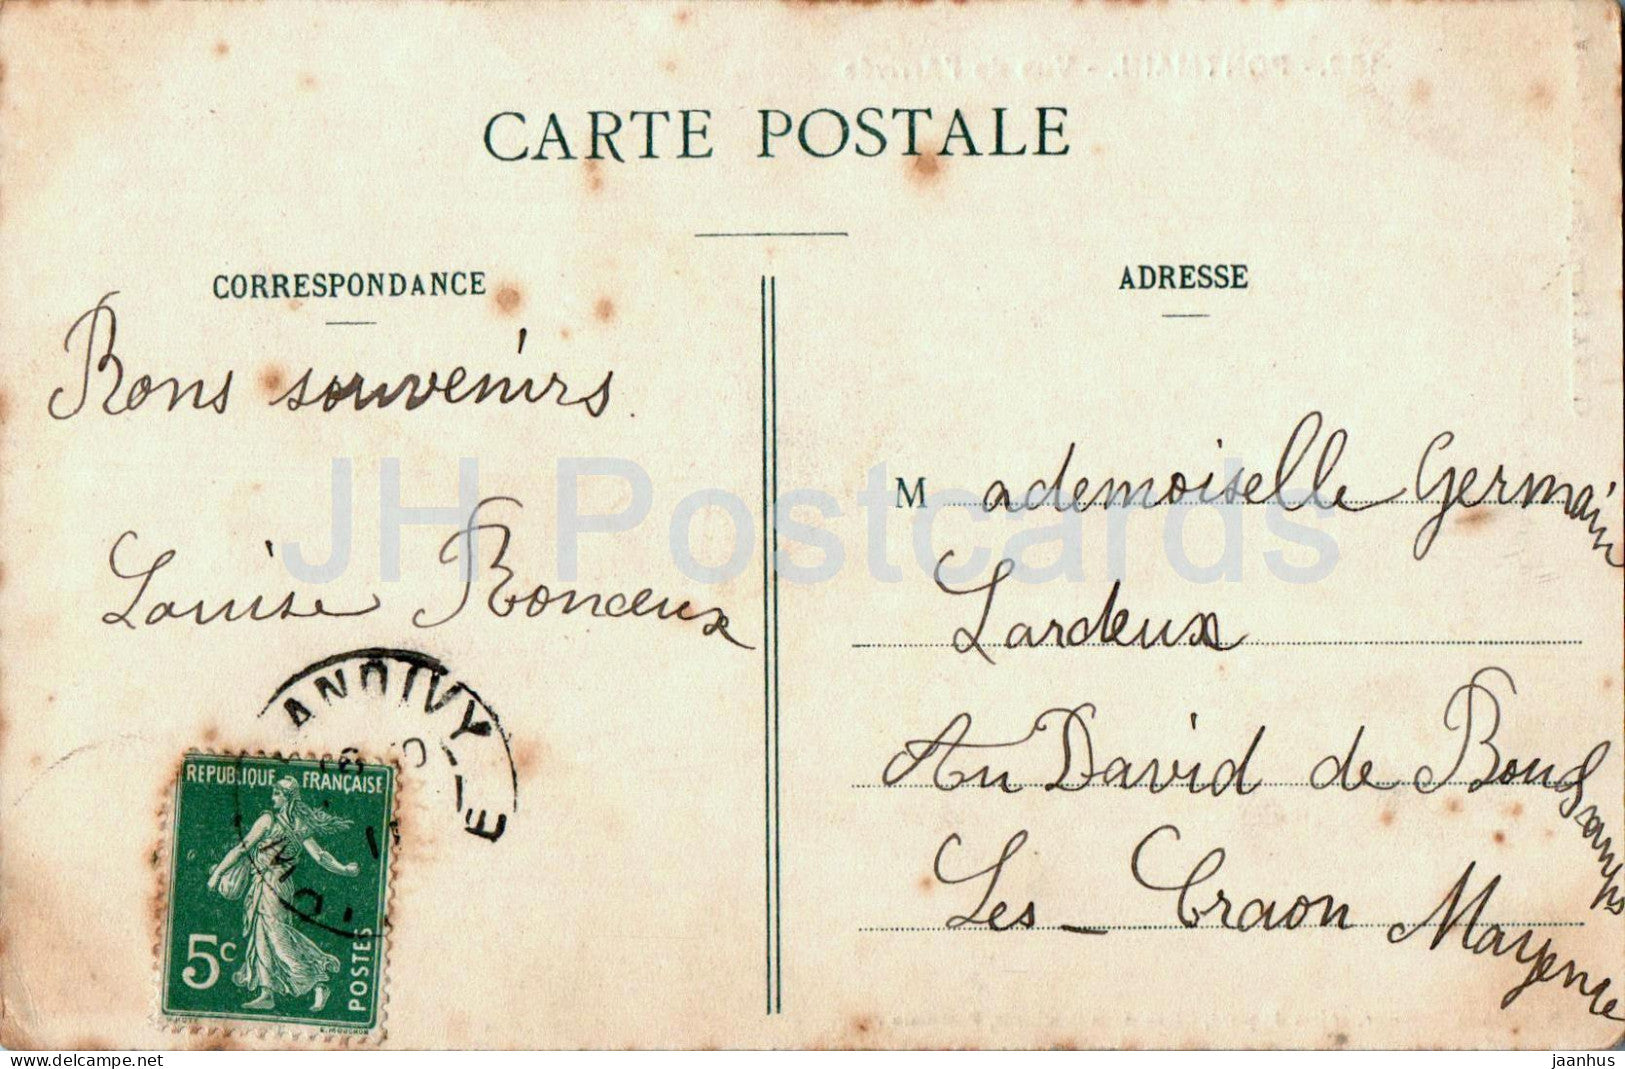 CARTE POSTALE
CORRESPONDANCE
ADRESSE
Bons souvenirs.
Louise Ronceux
Mademoiselle Germain
Lardeux
Au David de
Les - Craon Mayenne
ANDIVY
E
REPUBLIQUE FRANÇAISE
5c
POSTES
JH Postcards
delcampe.net
jaanhus